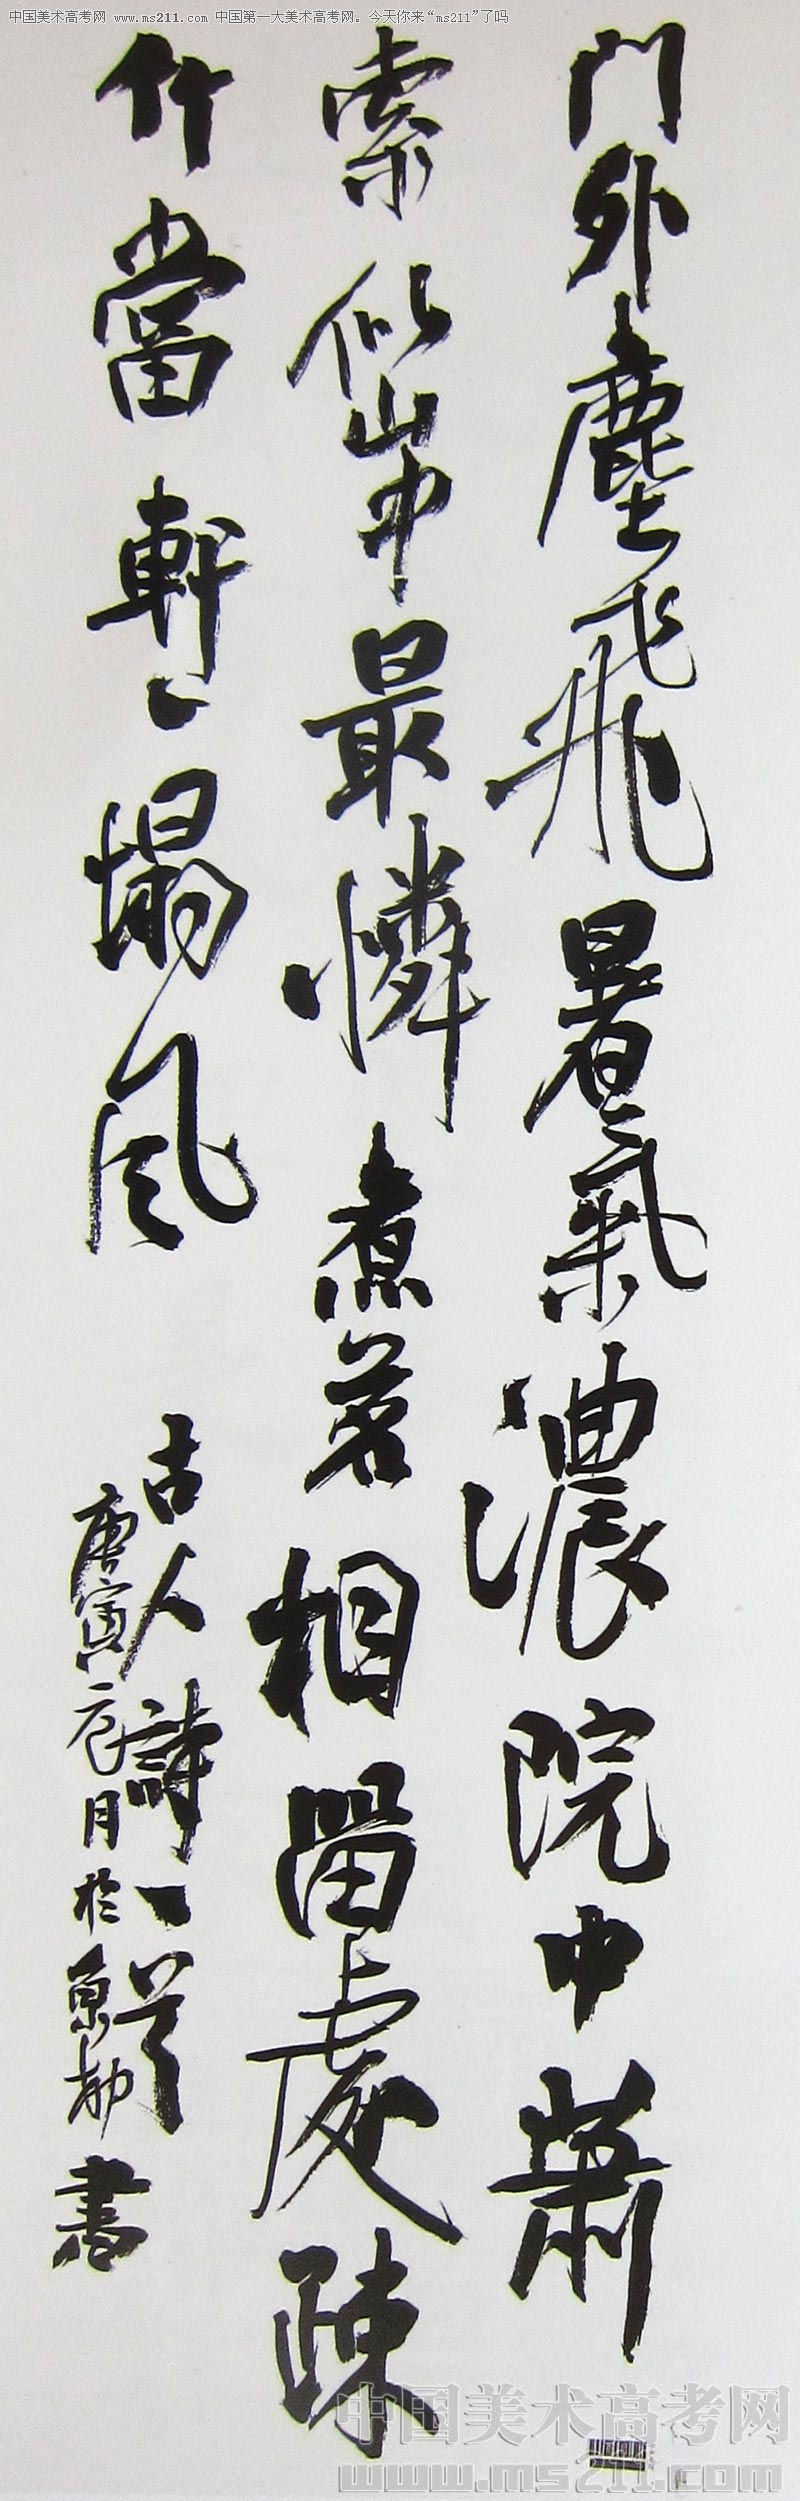 中国美术高考网 www.ms211.com 中国第一大美术高考网。今天你来“ms211”了吗
門外塵飛暑氣濃院中蕭
索似山中最憐煮茗相留處疎
竹當軒一榻風
古人詩一首
庚寅 月於京 書
中国美术高考网
www.ms211.com